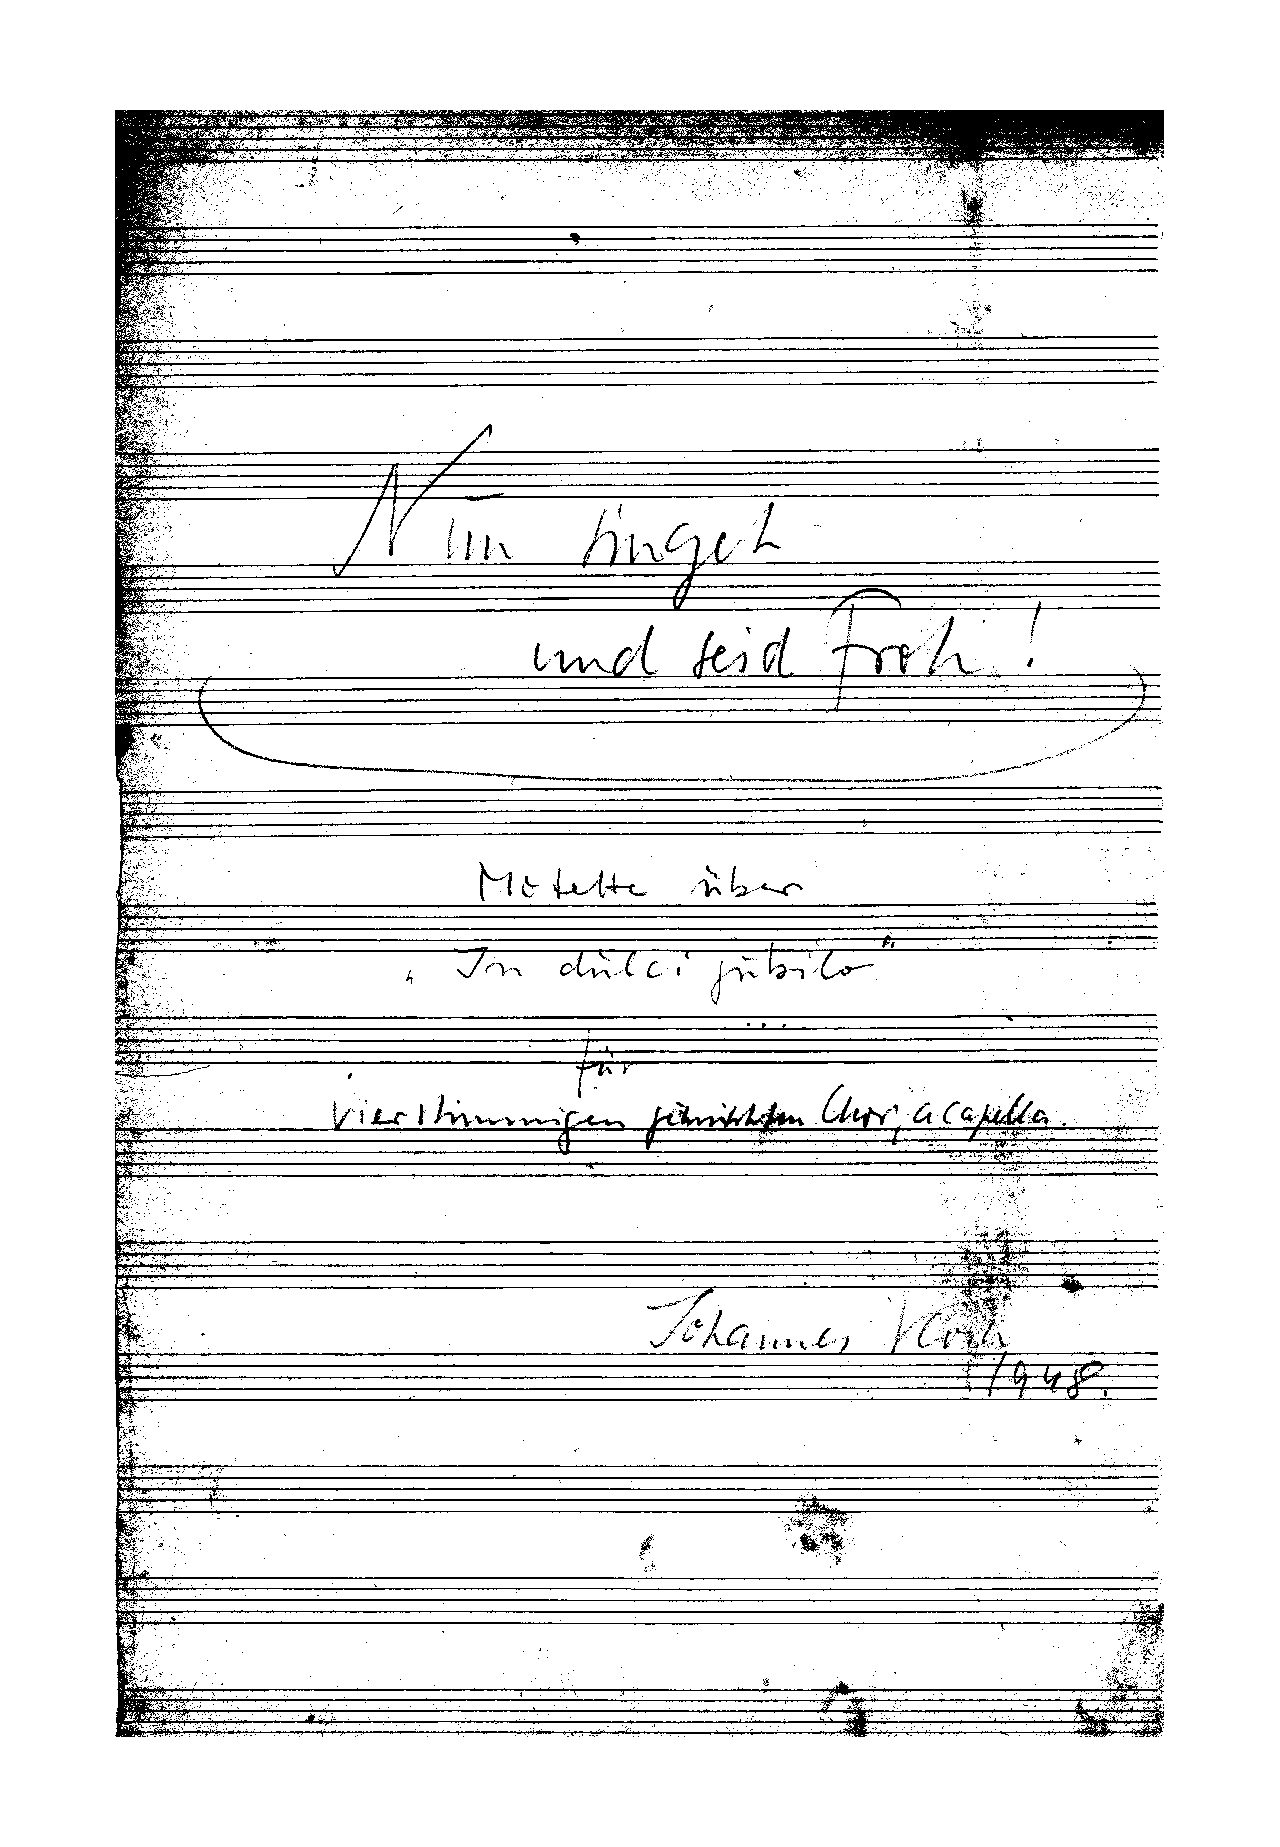 Nun singet
und seid Froh!
Motette über
„In dulci jubilo"
...
für
vierstimmigen gemischten Chor, a capella.
Johannes Koch
1948.